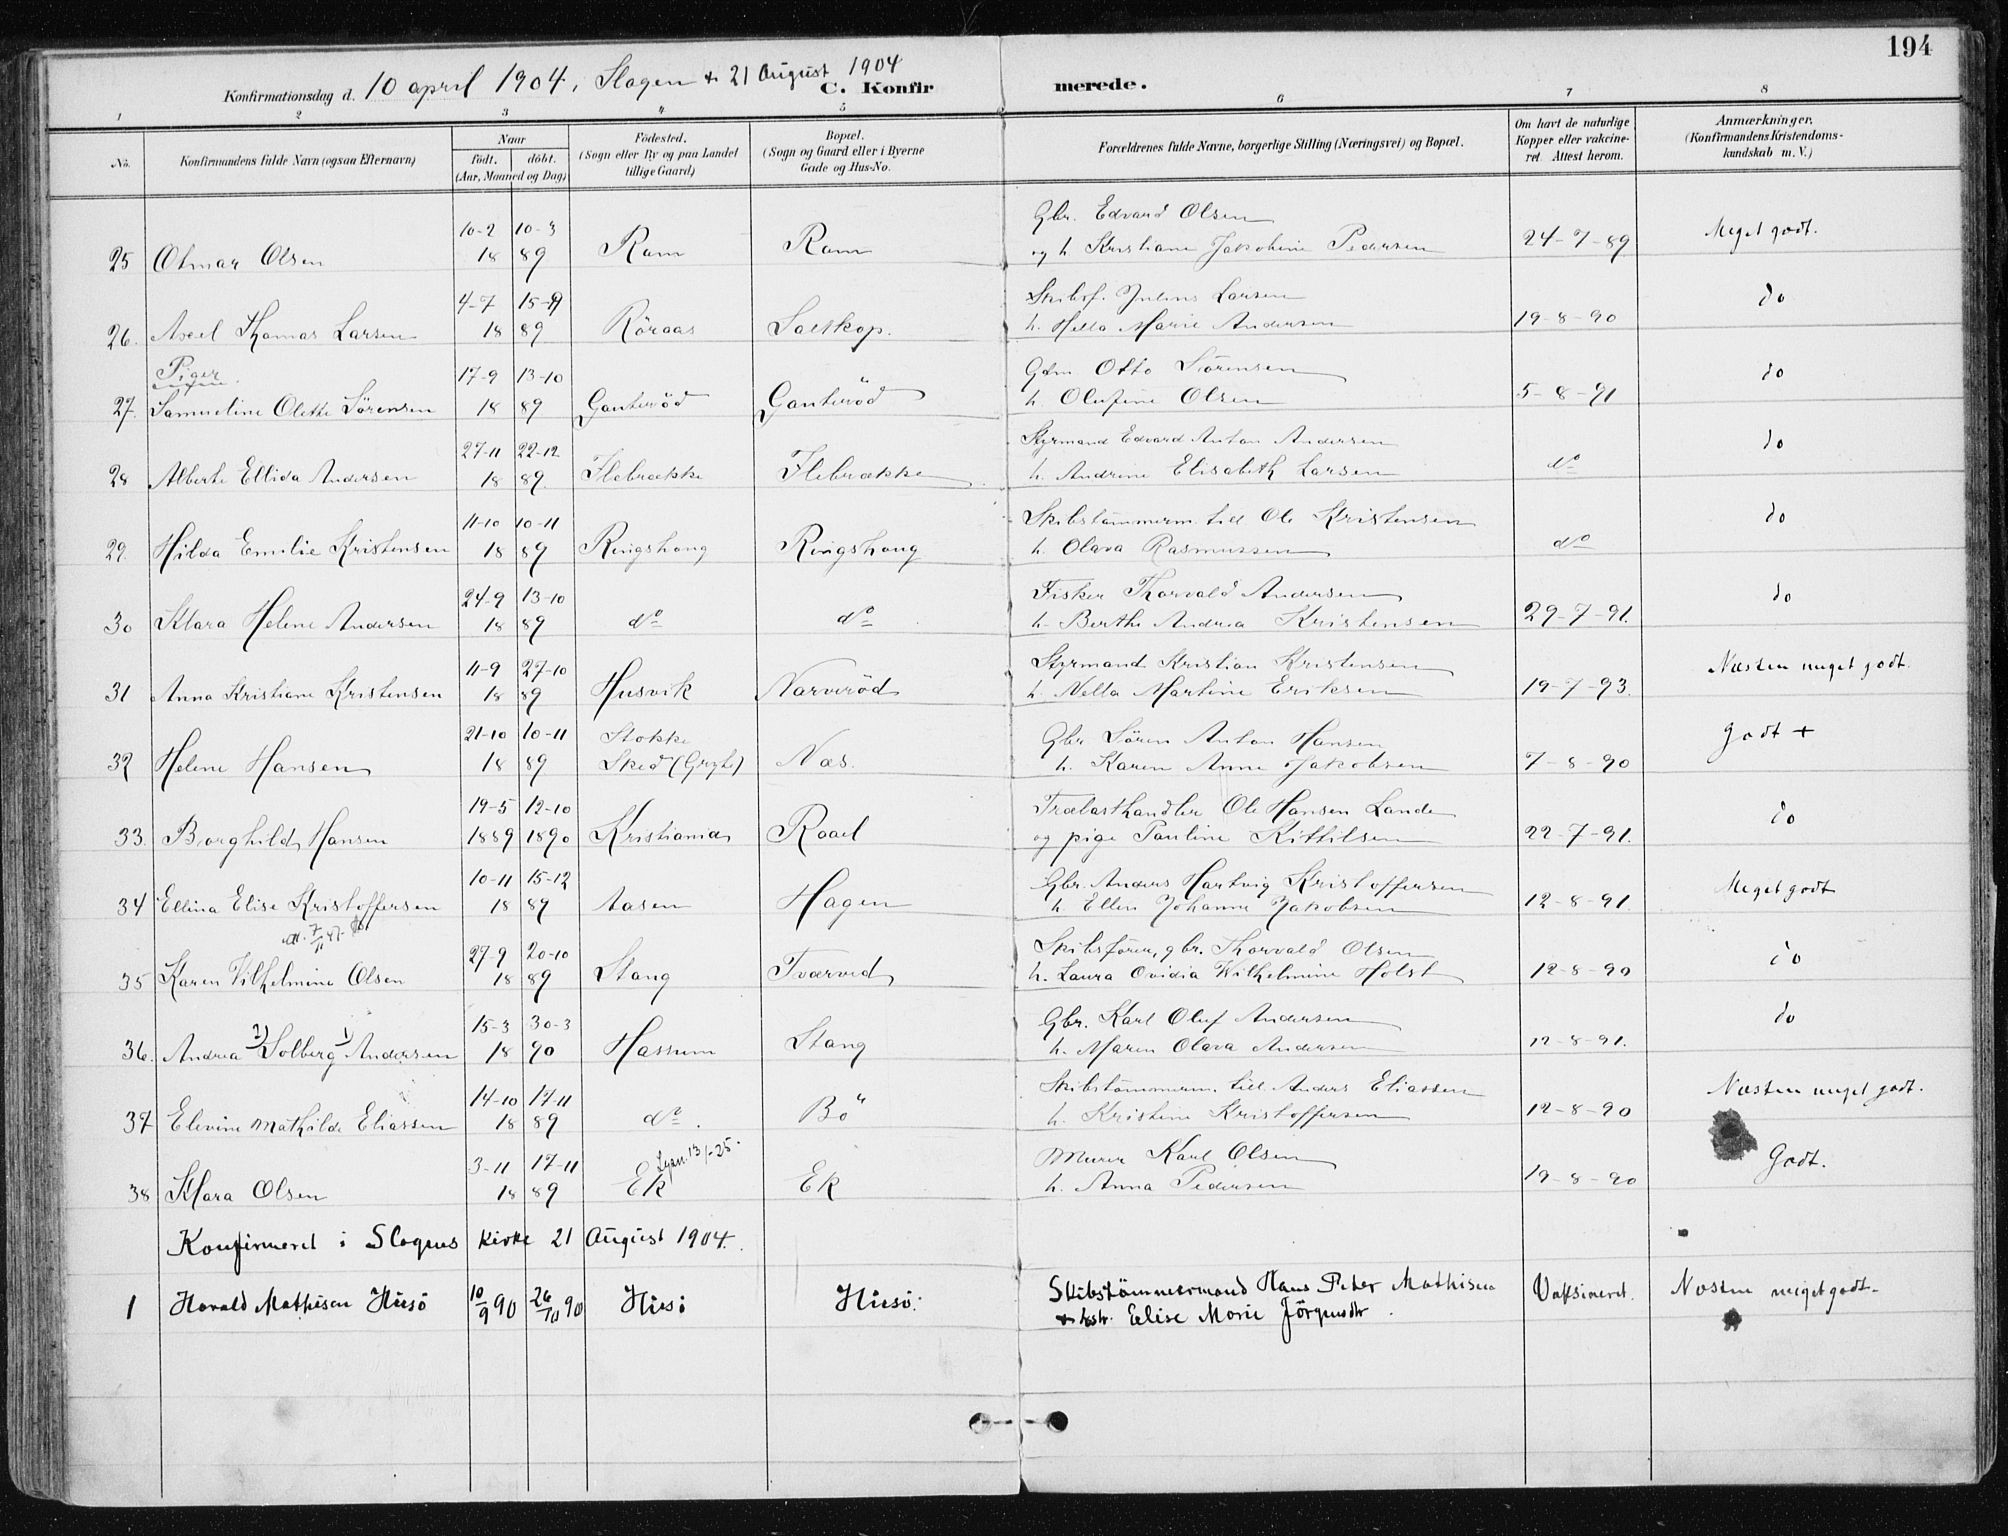 194
Konfirmationsdag d. 10 april 1904, Slagen + 21 August 1904
C. Konfirmerede.
1 2 3 4 5 6 7 8
No.
Konfirmandens fulde Navn (ogsaa Efternavn)
Naar
født. døbt.
(Aar, Maaned og Dag)
Födested.
(Sogn eller By og paa Landet
tillige Gaard)
Bopæl.
(Sogn og Gaard eller i Byerne
Gade og Hus-No.
Forældrenes fulde Navne, borgerlige Stilling (Næringsvei) og Bopæl.
Om havt de naturlige
Kopper eller vakcine-
ret. Attest herom.
Anmærkninger.
(Konfirmandens Kristendoms-
kundskab m. V.)
10-2 10-3 Gbr. Edvard Olsen
25 Otmar Olsen 18 89 Ram Ram og h. Kristiane Jakobine Pedersen 24-7-89 Meget godt.
4-7 15-9 Skibsf. Julius Larsen
26. Axel Thomas Larsen 18 89 Röraas Saltkop. h. Hella Marie Andersen 19-8-90 do
Piger
17-9 13-10 Gdm Otto Sörensen
27. Samueline Olette Sörensen 18 89 Ganteröd Ganteröd h. Olufine Olsen 5-8-91 do
27-11 22-12 Styrmand Edvard Anton Andersen
28 Alberte Ellida Andersen 18 89 Ilebrække Ilebrække h. Andrine Elisabeth Larsen do do
11-10 10-11 Skibstömmerm. till Ole Kristensen
29. Hilda Emilie Kristensen 18 89 Ringshaug Ringshaug h. Olava Rasmussen do do
24-9 13-10 Fisker Thorvald Andersen
30 Klara Helene Andersen 18 89 do do h. Berthe Andrea Kristensen 29-7-91. do
11-9 27-10 Styrmand Kristian Kristensen
31 Anna Kristiane Kristensen 18 89 Husvik Narveröd h. Nella Martine Eriksen 19-7-93. Næsten meget godt.
21-10 10-11 Stokke Gbr. Sören Anton Hansen
32 Helene Hansen 18 89 Sked (Gryte) Næs. h. Karen Anne Jakobsen 7-8-90 Godt +
19-5 12-10 Trælasthandler Ole Hansen Lande
33. Borghild Hansen 1889 1890 Kristiania Raael og pige Pauline Kittilsen 22-7-91. do
10-11 15-12 Gbr. Anders Hartvig Kristoffersen
34 Ellina Elise Kristoffersen 18 89 Aasen Hagen h. Ellen Johanne Jakobsen 12-8-91. Meget godt
27-9 20-10 Skibsförer, gbr. Thorvald Olsen
35 Karen Vilhelmine Olsen 18 89 Stang Tværved h. Laura Ovidia Wilhelmine Holst 12-8-90 do
15-3 30-3 Gbr. Karl Oluf Andersen
36. Andrea 2) Solberg 1) Andersen 18 90 Hassum Stang h. Maren Olava Andersen 12-8-91. do
14-10 17-11 Skibstömmerm. till Anders Eliassen
37 Elevine Mathilde Eliassen 18 89 do. Bö h. Kristine Kristoffersen 12-8-90 Næsten meget godt.
3-11 17-11 Murer Karl Olsen
38 Klara Olsen 18 89 Ek Ek h. Anna Pedersen 19-8-90 Godt.
Konfirmeret i Slagens Kirke 21 August 1904.
1 Harald Mathisen Hüsö 10/9 90 26/10 90 Hüsö Hüsö. Skibstömmermand Hans Peter Mathisen Vaksineret. Næsten meget godt.
+ hstr. Elise Marie Jörgensdtr.